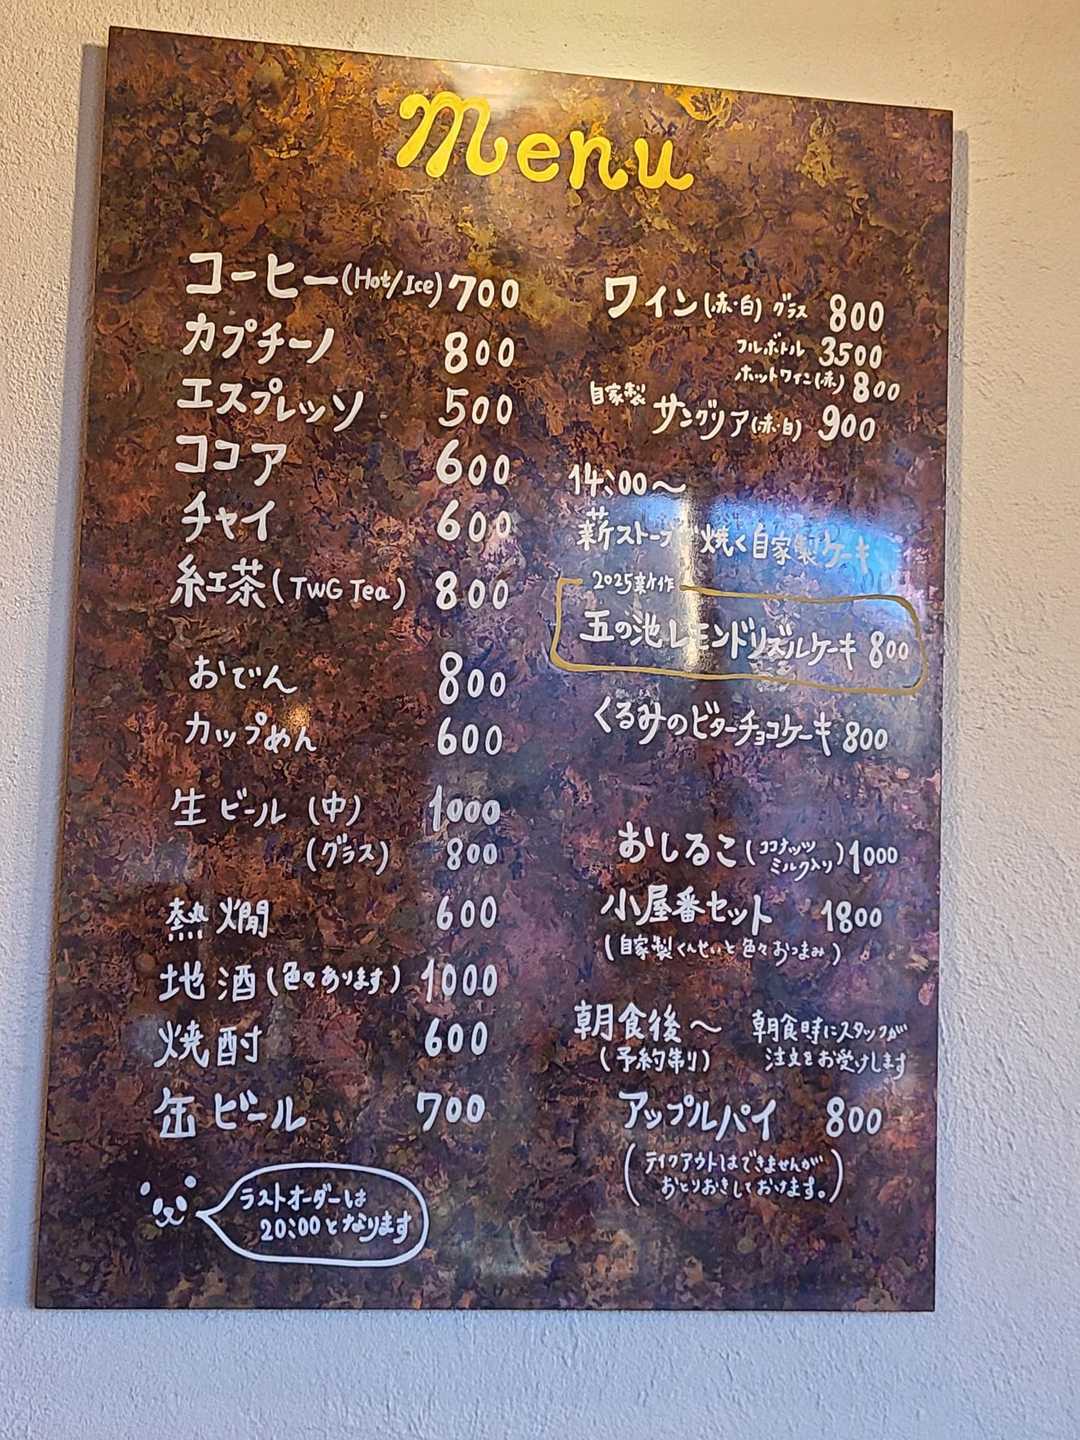 Menu
コーヒー(Hot/Ice) 700
カプチーノ 800
エスプレッソ 500
ココア 600
チャイ 600
紅茶(TWG Tea) 800
おでん 800
カップめん 600
生ビール (中) 1000
(グラス) 800
熱燗 600
地酒(色々あります) 1000
焼酎 600
缶ビール 700
ラストオーダーは
20:00となります
ワイン(赤・白) グラス 800
フルボトル 3500
ホットワイン(赤) 800
自家製 サングリア(赤・白) 900
14:00〜
薪ストーブで焼く自家製ケーキ
2025新作
五の池レモンドリズルケーキ 800
くるみのビターチョコケーキ 800
おしるこ(ココナッツミルク入り) 1000
小屋番セット 1800
(自家製くんせいと色々おつまみ)
朝食後〜 朝食時にスタッフが
(予約制) 注文をお受けします
アップルパイ 800
(テイクアウトはできませんが
おとりおきしておけます。)